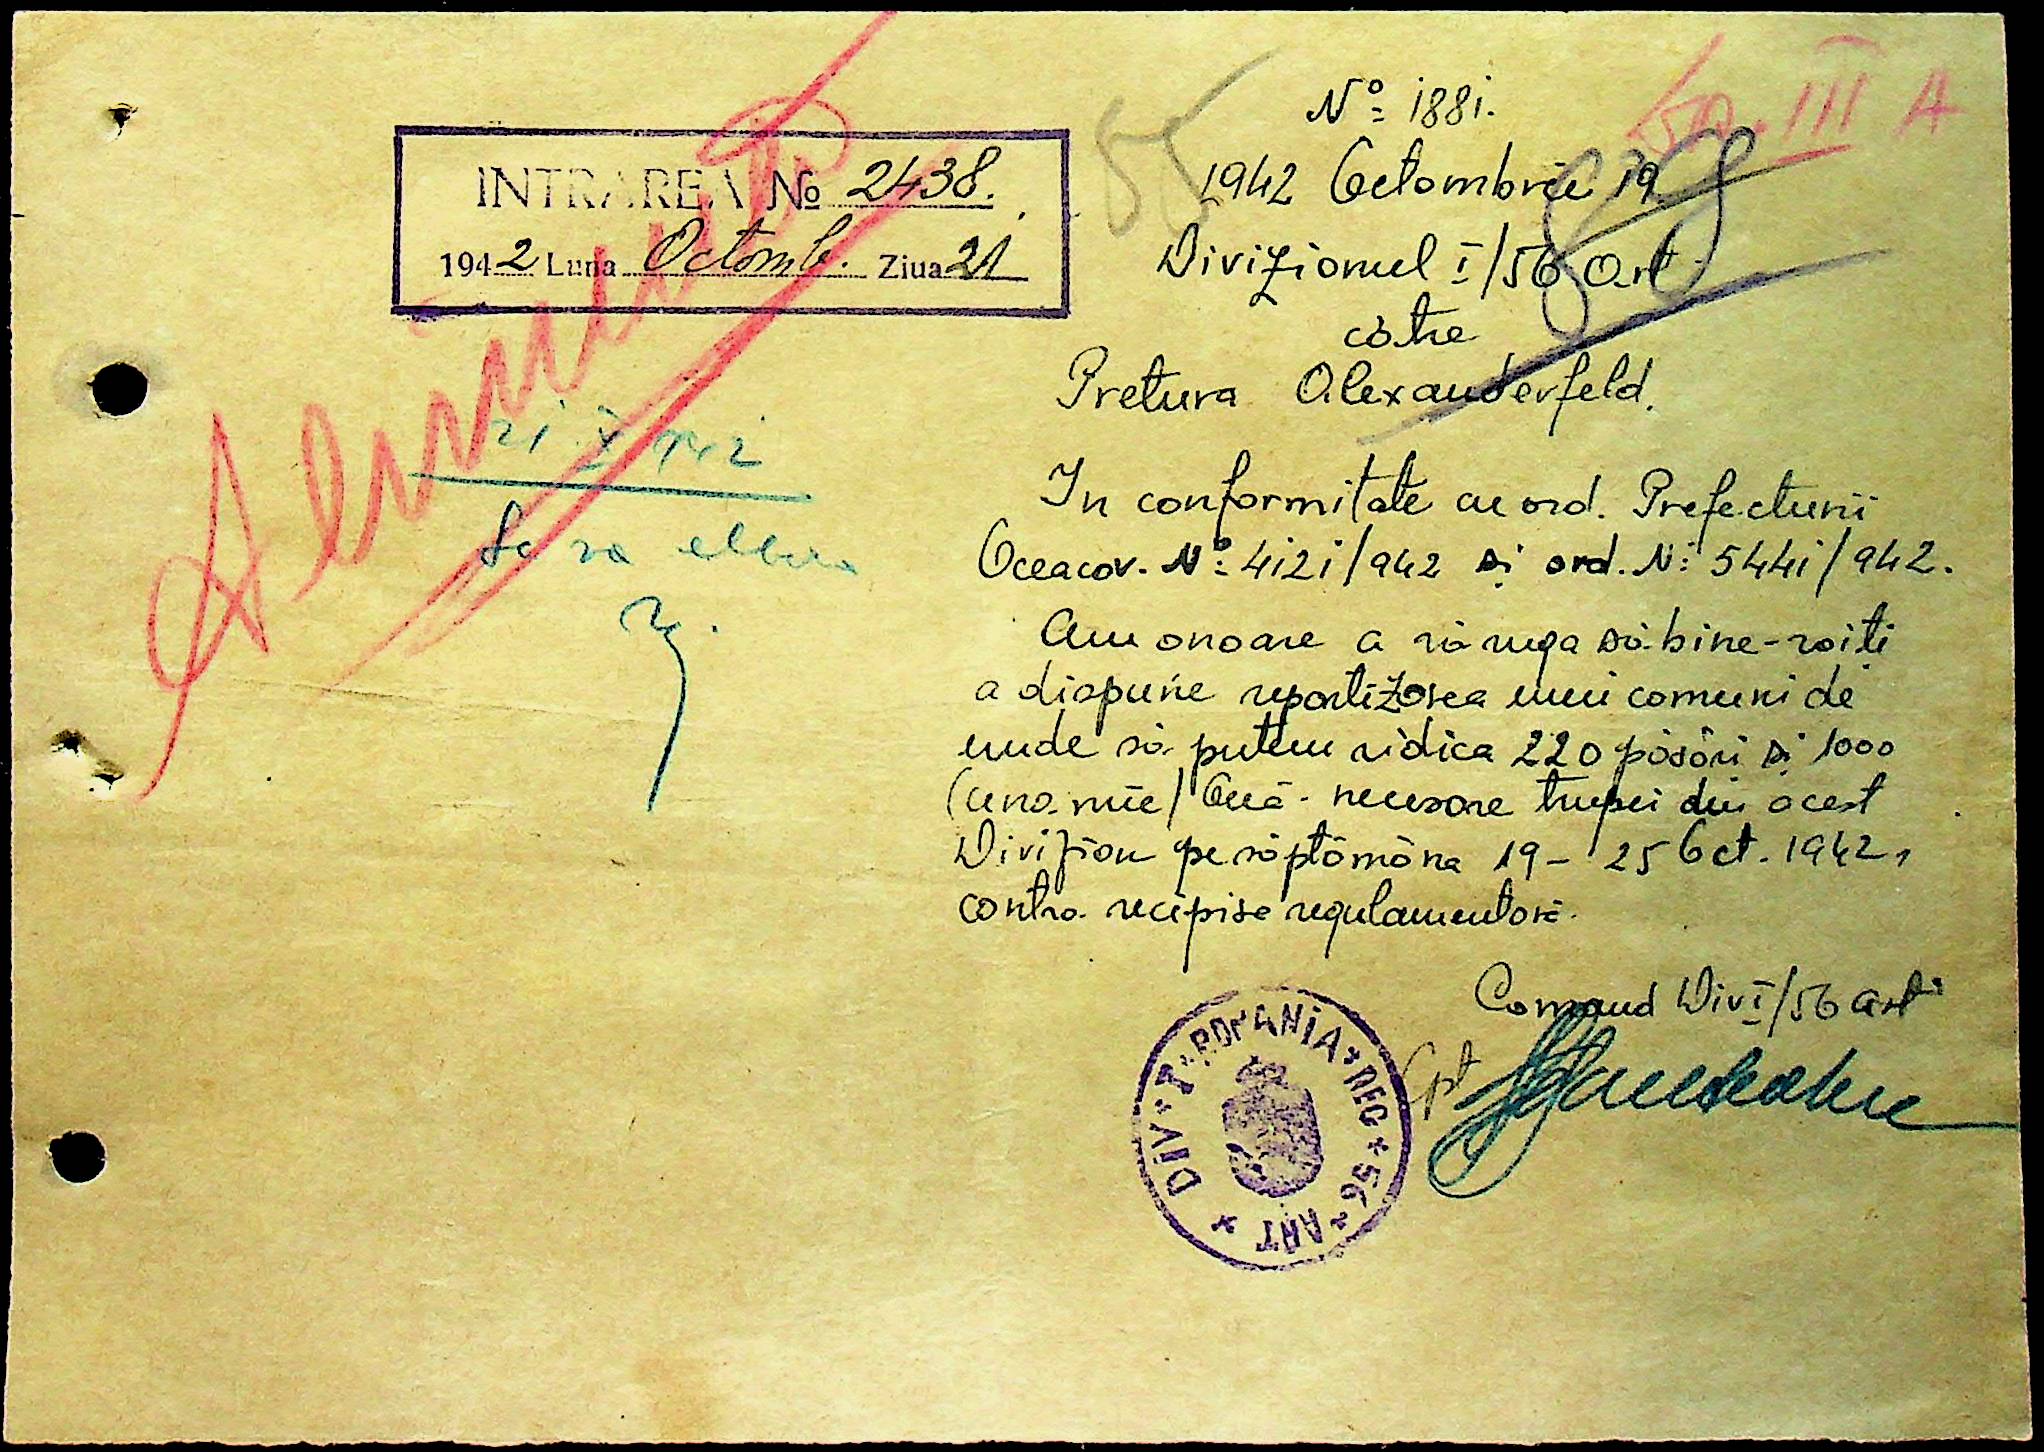 INTRAREA № 2438.
1942 Luna Octomb. Ziua 21
Aliment
21 X 942
Se va elibera
55
No 1881.
III A
1942 Octombrie 19
Divizionul I/56 Art
către
Pretura Alexanderfeld.
In conformitate cu ord. Prefecturii
Oceacov. No 4121/942 și ord. N: 5441/942.
Am onoare a vă ruga să bine-voiți
a dispune repartizarea unei comuni de
unde să putem ridica 220 păsări și 1000
(una mie) Ouă necesare trupei din acest
Divizion pe săptămâna 19 - 25 Oct. 1942,
contra recipise regulamentară.
Comand Div I/56 art
Cpt
DIV * I * ROMANIA * REG * 56 * ART *